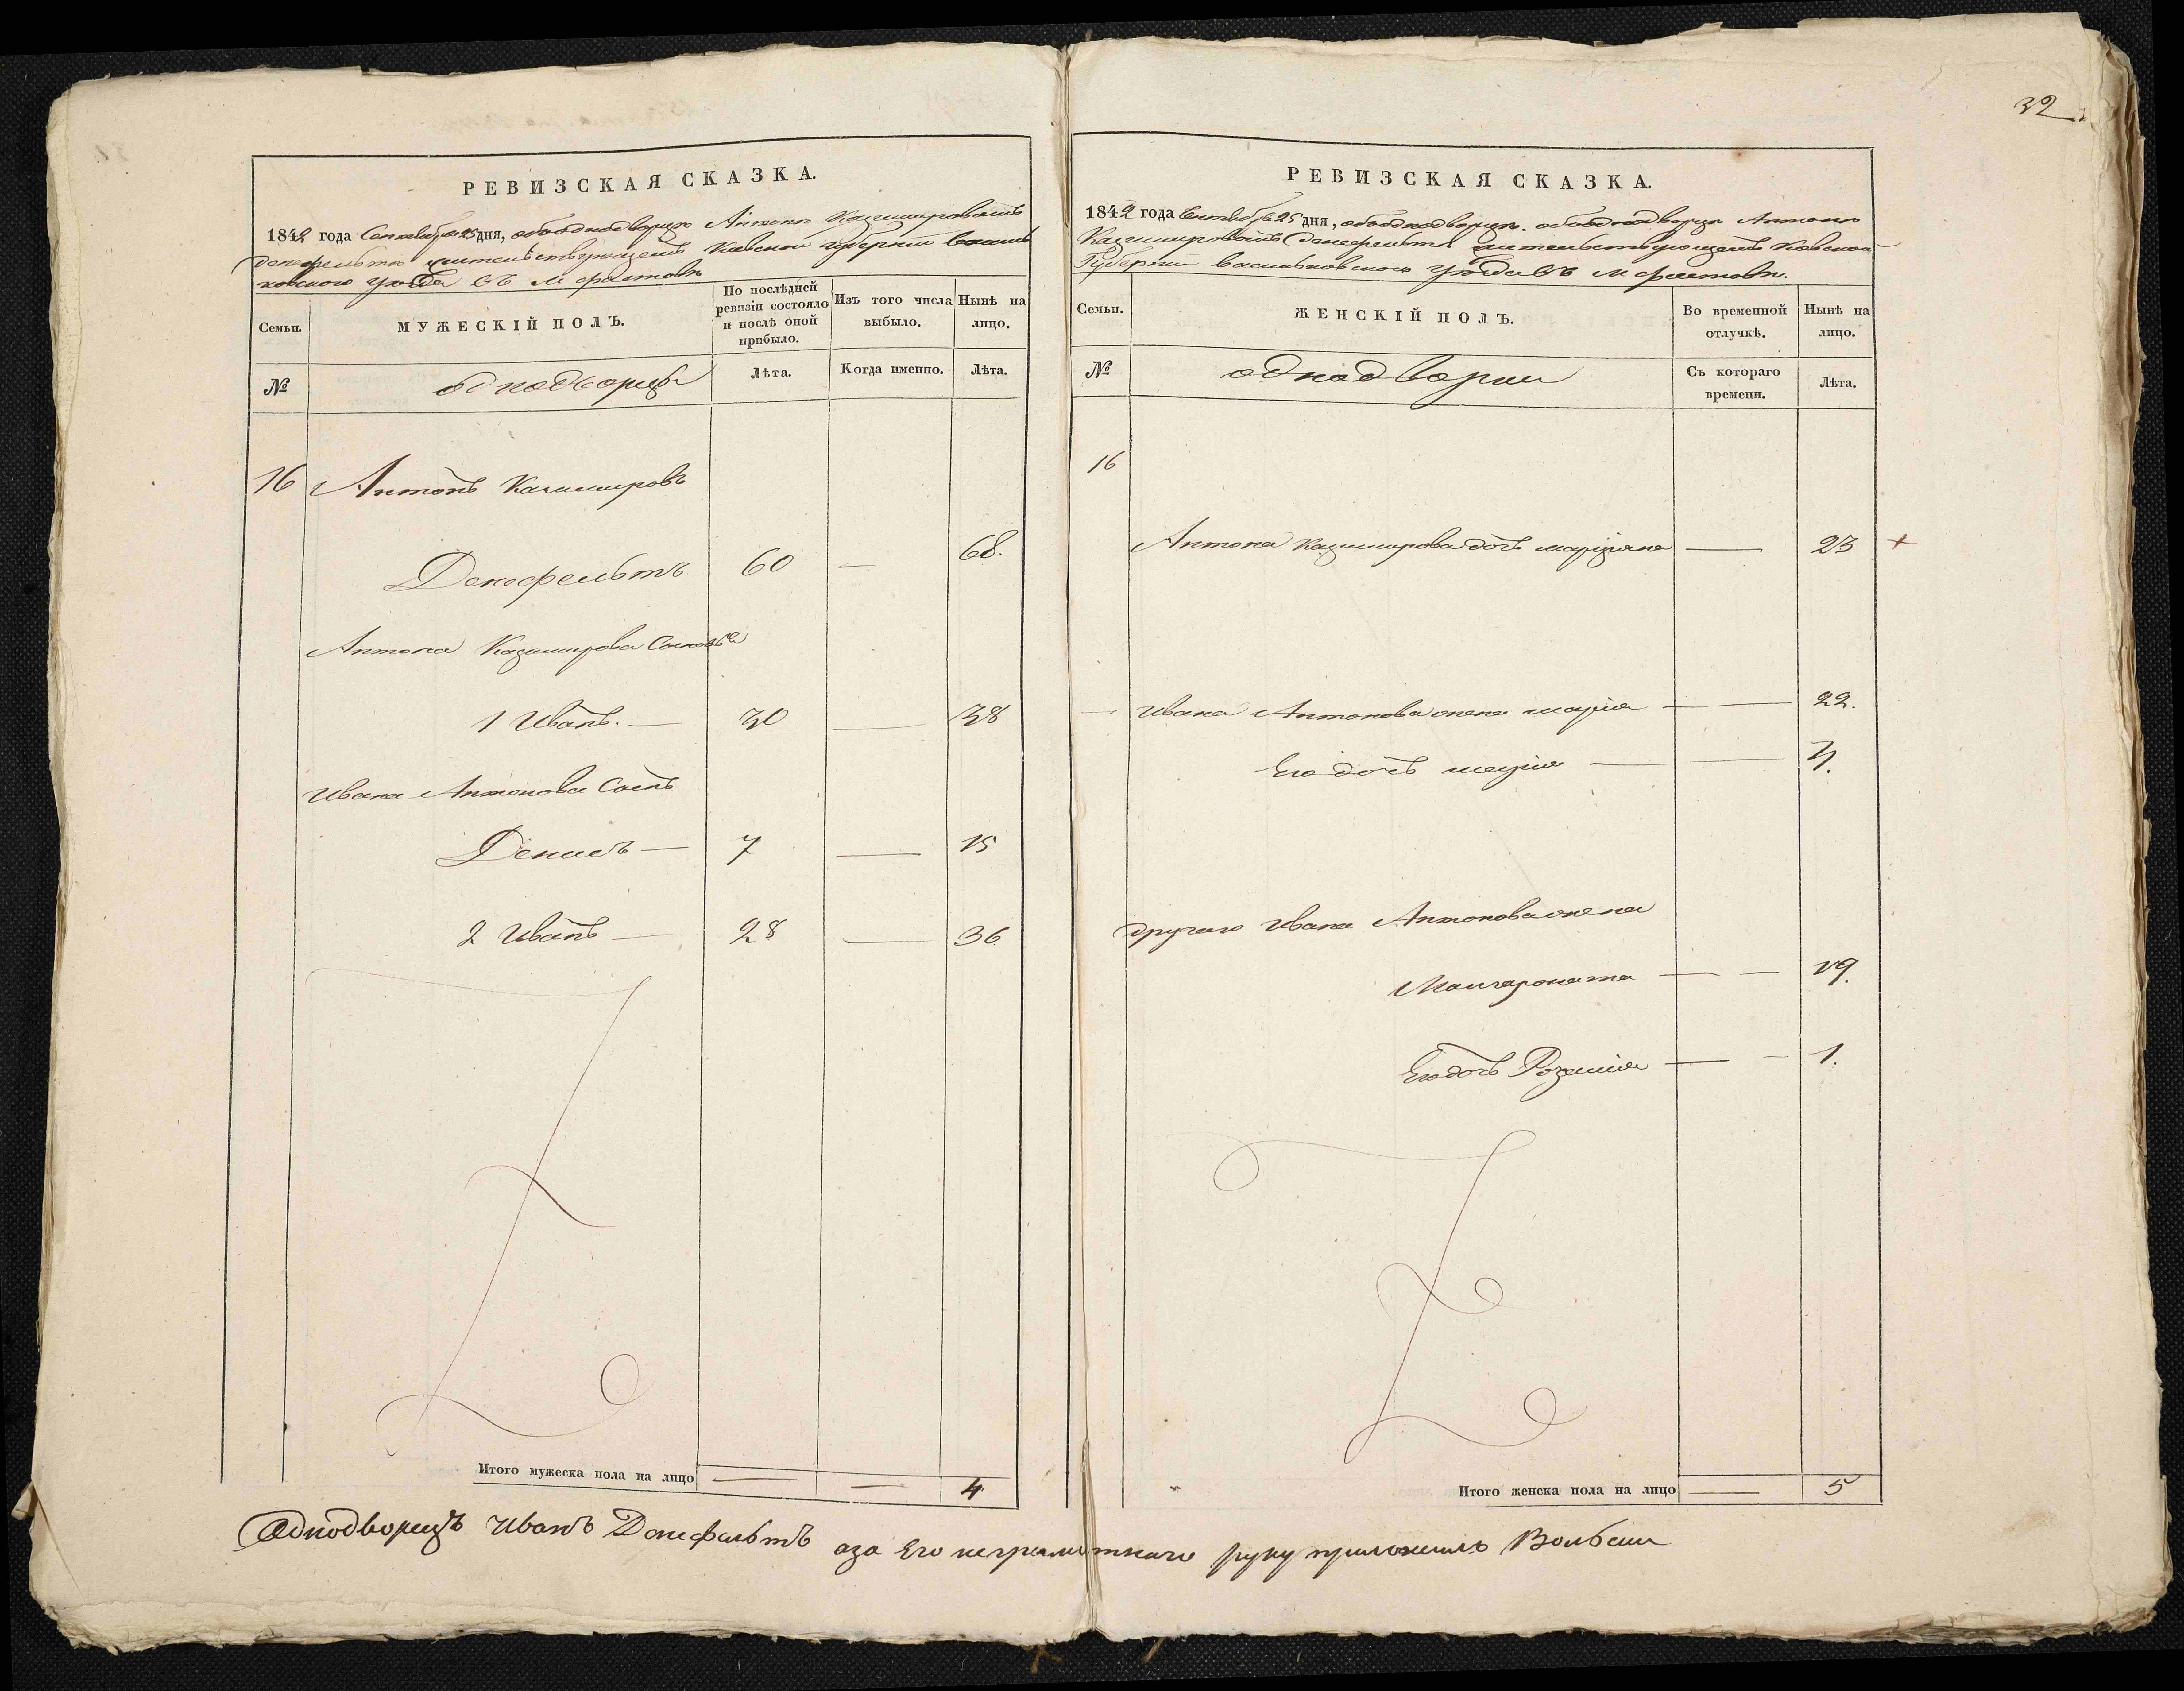 32
РЕВИЗСКАЯ СКАЗКА.
1842 года Сентября 25 дня, обоодно дворцѣ Антонѣ Казимировомъ
Денефельтѣ жительствующемъ Кіевской губерніи Василь
ковского уѣзда въ м Фастовѣ
Семьи.
МУЖЕСКІЙ ПОЛЪ.
По послѣдней
ревизіи состояло
и послѣ оной
прибыло.
Изъ того числа
выбыло.
Нынѣ на
лицо.
№
однодворцы
Лѣта.
Когда именно.
Лѣта.
16 Антонъ Казимировъ
Денефельтъ 60 — 68.
Антона Казимирова Сыновья
1 Иванъ. — 30 — 38
Ивана Антонова Сынъ
Денисъ — 7 — 15
2 Иванъ — 28 — 36
Итого мужеска пола на лицо — — 4
РЕВИЗСКАЯ СКАЗКА.
1842 года Сентября 25 дня, обооднодворцѣ. обооднодворцѣ Антонѣ
Казимировомъ Денефельтѣ жительствующемъ Кіевской
Губерніи Васильковского уѣзда въ м Фастовѣ.
Семьи.
ЖЕНСКІЙ ПОЛЪ.
Во временной
отлучкѣ.
Нынѣ на
лицо.
№
однодворки
Съ котораго
времени.
Лѣта.
16
Антона Казимирова дочь маріяна — 23 +
— Ивана Антонова жена марія — — 22.
Его дочь марія — —
другаго Ивана Антонова жена
— — 19.
Его дочь Розалія — — 1.
Итого женска пола на лицо — 5
Однодворецъ Иванъ Денефельтъ аза Его неграмотнаго руку приложилъ